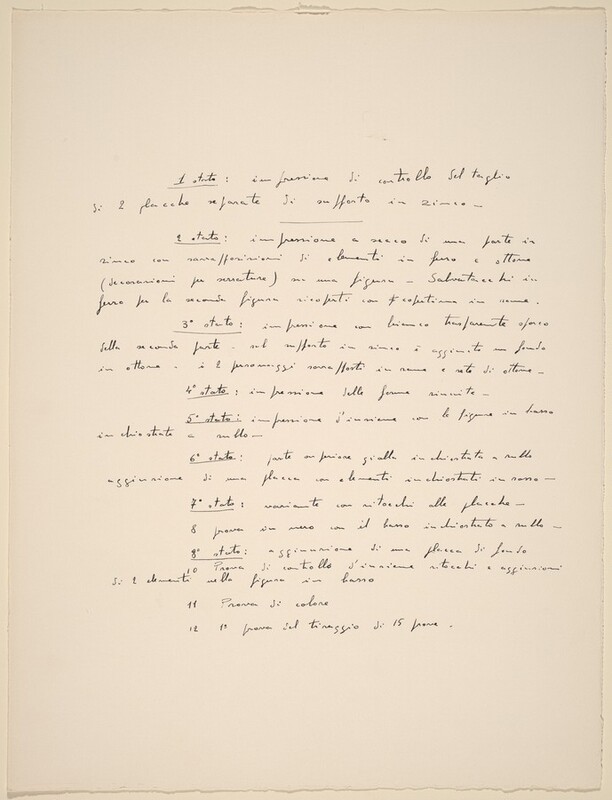 1 stato : impressione di controllo del taglio
di 2 placche separate di supporto in zinco —
2 stato : impressione a secco di una parte in
zinco con sovrapposizioni di elementi in ferro e ottone
(decorazioni per serrature) su una figura — Salvatacchi in
ferro per la seconda figura ricoperti con copertina in rame .
3° stato : impressione con bianco trasparente sporco
della seconda parte - sul supporto in zinco è aggiunto un fondo
in ottone . i 2 personaggi sovrapposti in rame e rete di ottone —
4° stato : impressione delle forme riunite —
5° stato : impressione d'insieme con le figure in basso
inchiostrate a rullo —
6° stato : parte superiore gialla inchiostrata a rullo
aggiunzione di una placca con elementi inchiostrati in rosso —
7° stato : variante con ritocchi alle placche —
8 prova in nero con il basso inchiostrato a rullo —
8° stato : aggiunzione di una placca di fondo
10 Prova di controllo d'insieme ritocchi e aggiunzioni
di 2 elementi nella figura in basso
11 Prova di colore
12 1ª prova del tiraggio di 15 prove .